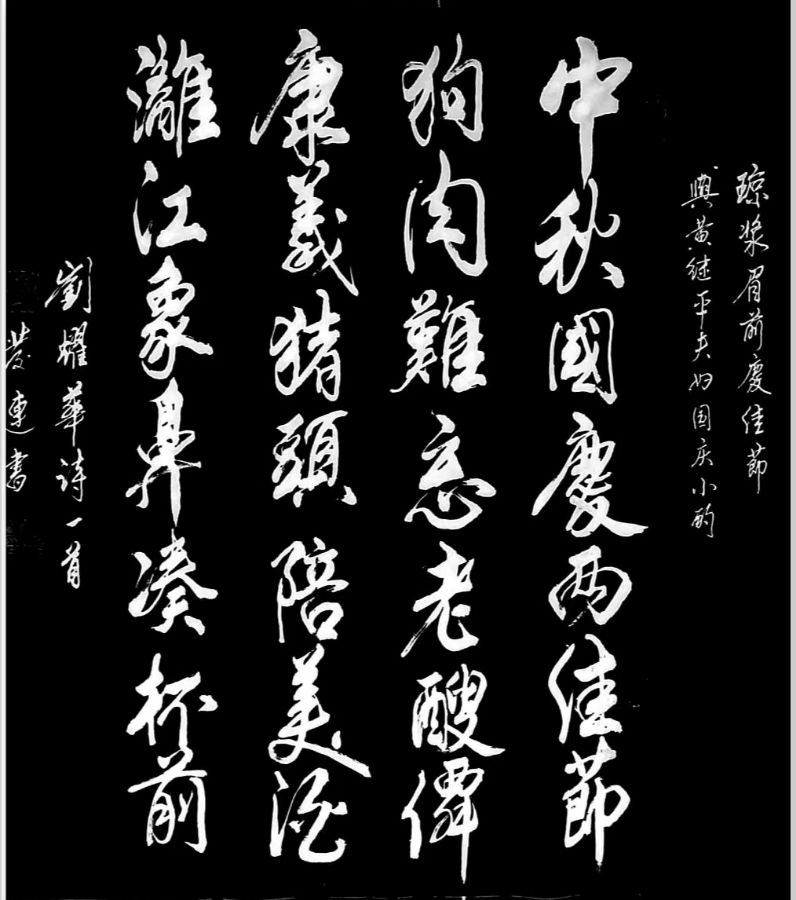 琼浆眉前慶佳節
與黄继平夫妇国庆小酌
中秋國慶兩佳節
狗肉難忘老醙僊
康義猪頭陪美酒
灕江象鼻凑杯前
劉燿華诗一首
连書